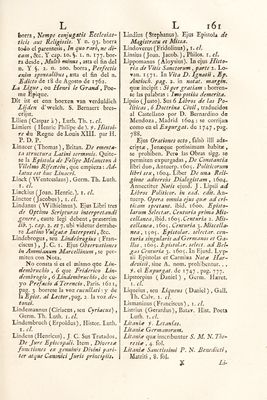 L
L
161
borra, Nempe conjugatis Ecclesias-
ticis aut Religiosis. Y n. 93. borra
todo el parentesis, In quo tam, &c.
Item, §. V. cap. 10. §. 1. n. 157. borra
desde, Multi minus, asta el fin del
n. Y §. 2. n. 200. borra, Perfectis
enim sponsalibus, asta el fin del n.
Edicto de 18 de Agosto de 1762.
La Ligue, ou Henri le Grand, Poe-
me Epique.
Dit ist et een boecken van verduldich
Lijden O'wrich. S. Bernaert bees-
crijuet.
Lilien (Caspar à), Luth. Th. 1. cl.
Limiers (Henric Philipe de). § Histoi-
re du Regne de Louis XIII. par H.
P. D. P.
Linacer (Thomas), Britan. De emenda-
ta structura Latini sermonis. Quite-
se la Epistola de Felipe Melancton à
Vvilelmo Reifestein, que empieza: Ad-
latus est huc Linacri.
Linck (Wentceslaus), Germ. Th. Luth.
1. cl.
Lincius (Joan. Henric.). 1. cl.
Linctor (Jacobus), 1. cl.
Lindanus (Wilhelmus). Ejus Libri tres
de Optimo Scripturas interpretandi
genere, caute legi debent, praesertim
lib. 3. cap. 2. et 3. ubi videtur detrabere
vet. Latino Vulgato Interpreti, &c.
Lindebrogius seu Lindenbrogius (Fran-
ciscus) J. C. 1. cl. Illius Observationes
in Ammianum Marcellinum, se per-
miten con Nota.
No consta si es el mismo que Lin-
dembruchio, ó que Friderico Lin-
dembrogio, ó Lindenbruchio, de cu-
yo Prefacio à Terencio, Paris. 1621,
pag. 3 borrese la voz excullari: y de
la Epist. al Lector, pag. 2. la voz de-
tonsi.
Lindemannus (Ciriacus, seu Cyriacus),
Germ. Th. Luth. 1. cl.
Lindembruch (Erpoldus), Histor. Luth.
1. cl.
Lindem (Henricus), J. C. Sus Tratados,
De Jure Episcopali. Item, Discretae
functiones ex genuinis Divini pari-
ter atque Canonici Juris principiis.
Lindius (Stephanus). Ejus Epistola de
Magisterio et Missa.
Lindovicus (Fridolinus), 1. cl.
Linnius (Joan. Jacob.), Philos. 1. cl.
Lippomanus (Aloysius). In ejus Histo-
ria de Vitis Sanctorum, parte 1. Lo-
van. 1571. In Vita D. Ignatii, Ep.
Antioch. pag. 2. in notat. margin.
quae incipit: Si per gratiam: borren-
se la palabras: Imo potius demerita.
Lipsio (Justo). Sus 6 Libros de las Po-
liticas, ó Doctrina Civil, traducidos
al Castellano por D. Bernardino de
Mendoza, Madrid 1604; se corrijan
como en el Expurgat. de 1747, pag.
788.
Ejus Orationes octo, falsò illi ads-
criptae, tamque potissimum habitae,
se prohiben. Pero las Obras siguientes se
permiten expurgadas, De Constantia
libri duo, Antuerp. 1605. Politicorum
libri sex, 1604. Liber De una Reli-
gione adversùs Dialogistam, 1604.
Annectitur Notis ejusd. J. Lipsii ad
Libros Politicor. in ead. edit. An-
tuerp. Opera omnia ejus quae ad cri-
ticam spectant, ibid. 1600. Epistola-
larum Selectar. Centuria prima Mis-
cellanea, ibid. 1605. Centuria 2. Mis-
cellanea, 1605. Centuria 3. Miscella-
nea, 1605. Epistolar. selectar. cen-
turia singularis ad Germanos et Ga-
llos, 1605. Epistolar. select. ad Bel-
gas Centuria 3. 1605. In Epist. Lyp-
sii Epistolas et Carmina Notae Hæc-
dervicii, sine A. nom. prohibentur.
§. el Expurgat. de 1747, pag. 777.
Lipstorpius (Daniel), Germ. Haeret.
1. cl.
Liqueius, seu Liqueus (Daniel), Gall.
Th. Calv. 1. cl.
Lismaninus (Franciscus), 1. cl.
Listrius (Gerardus), Batav. Hist. Poeta
Luth. 1. cl.
Litaniae 5. Latenses.
Litaniae Germanarum.
Litaniae que inscribuntur S. M. N. The-
rae, 4 fol.
Litaniae Sanctissimi P. N. Benedicti,
Mattiti, 8 fol.
X
Li-